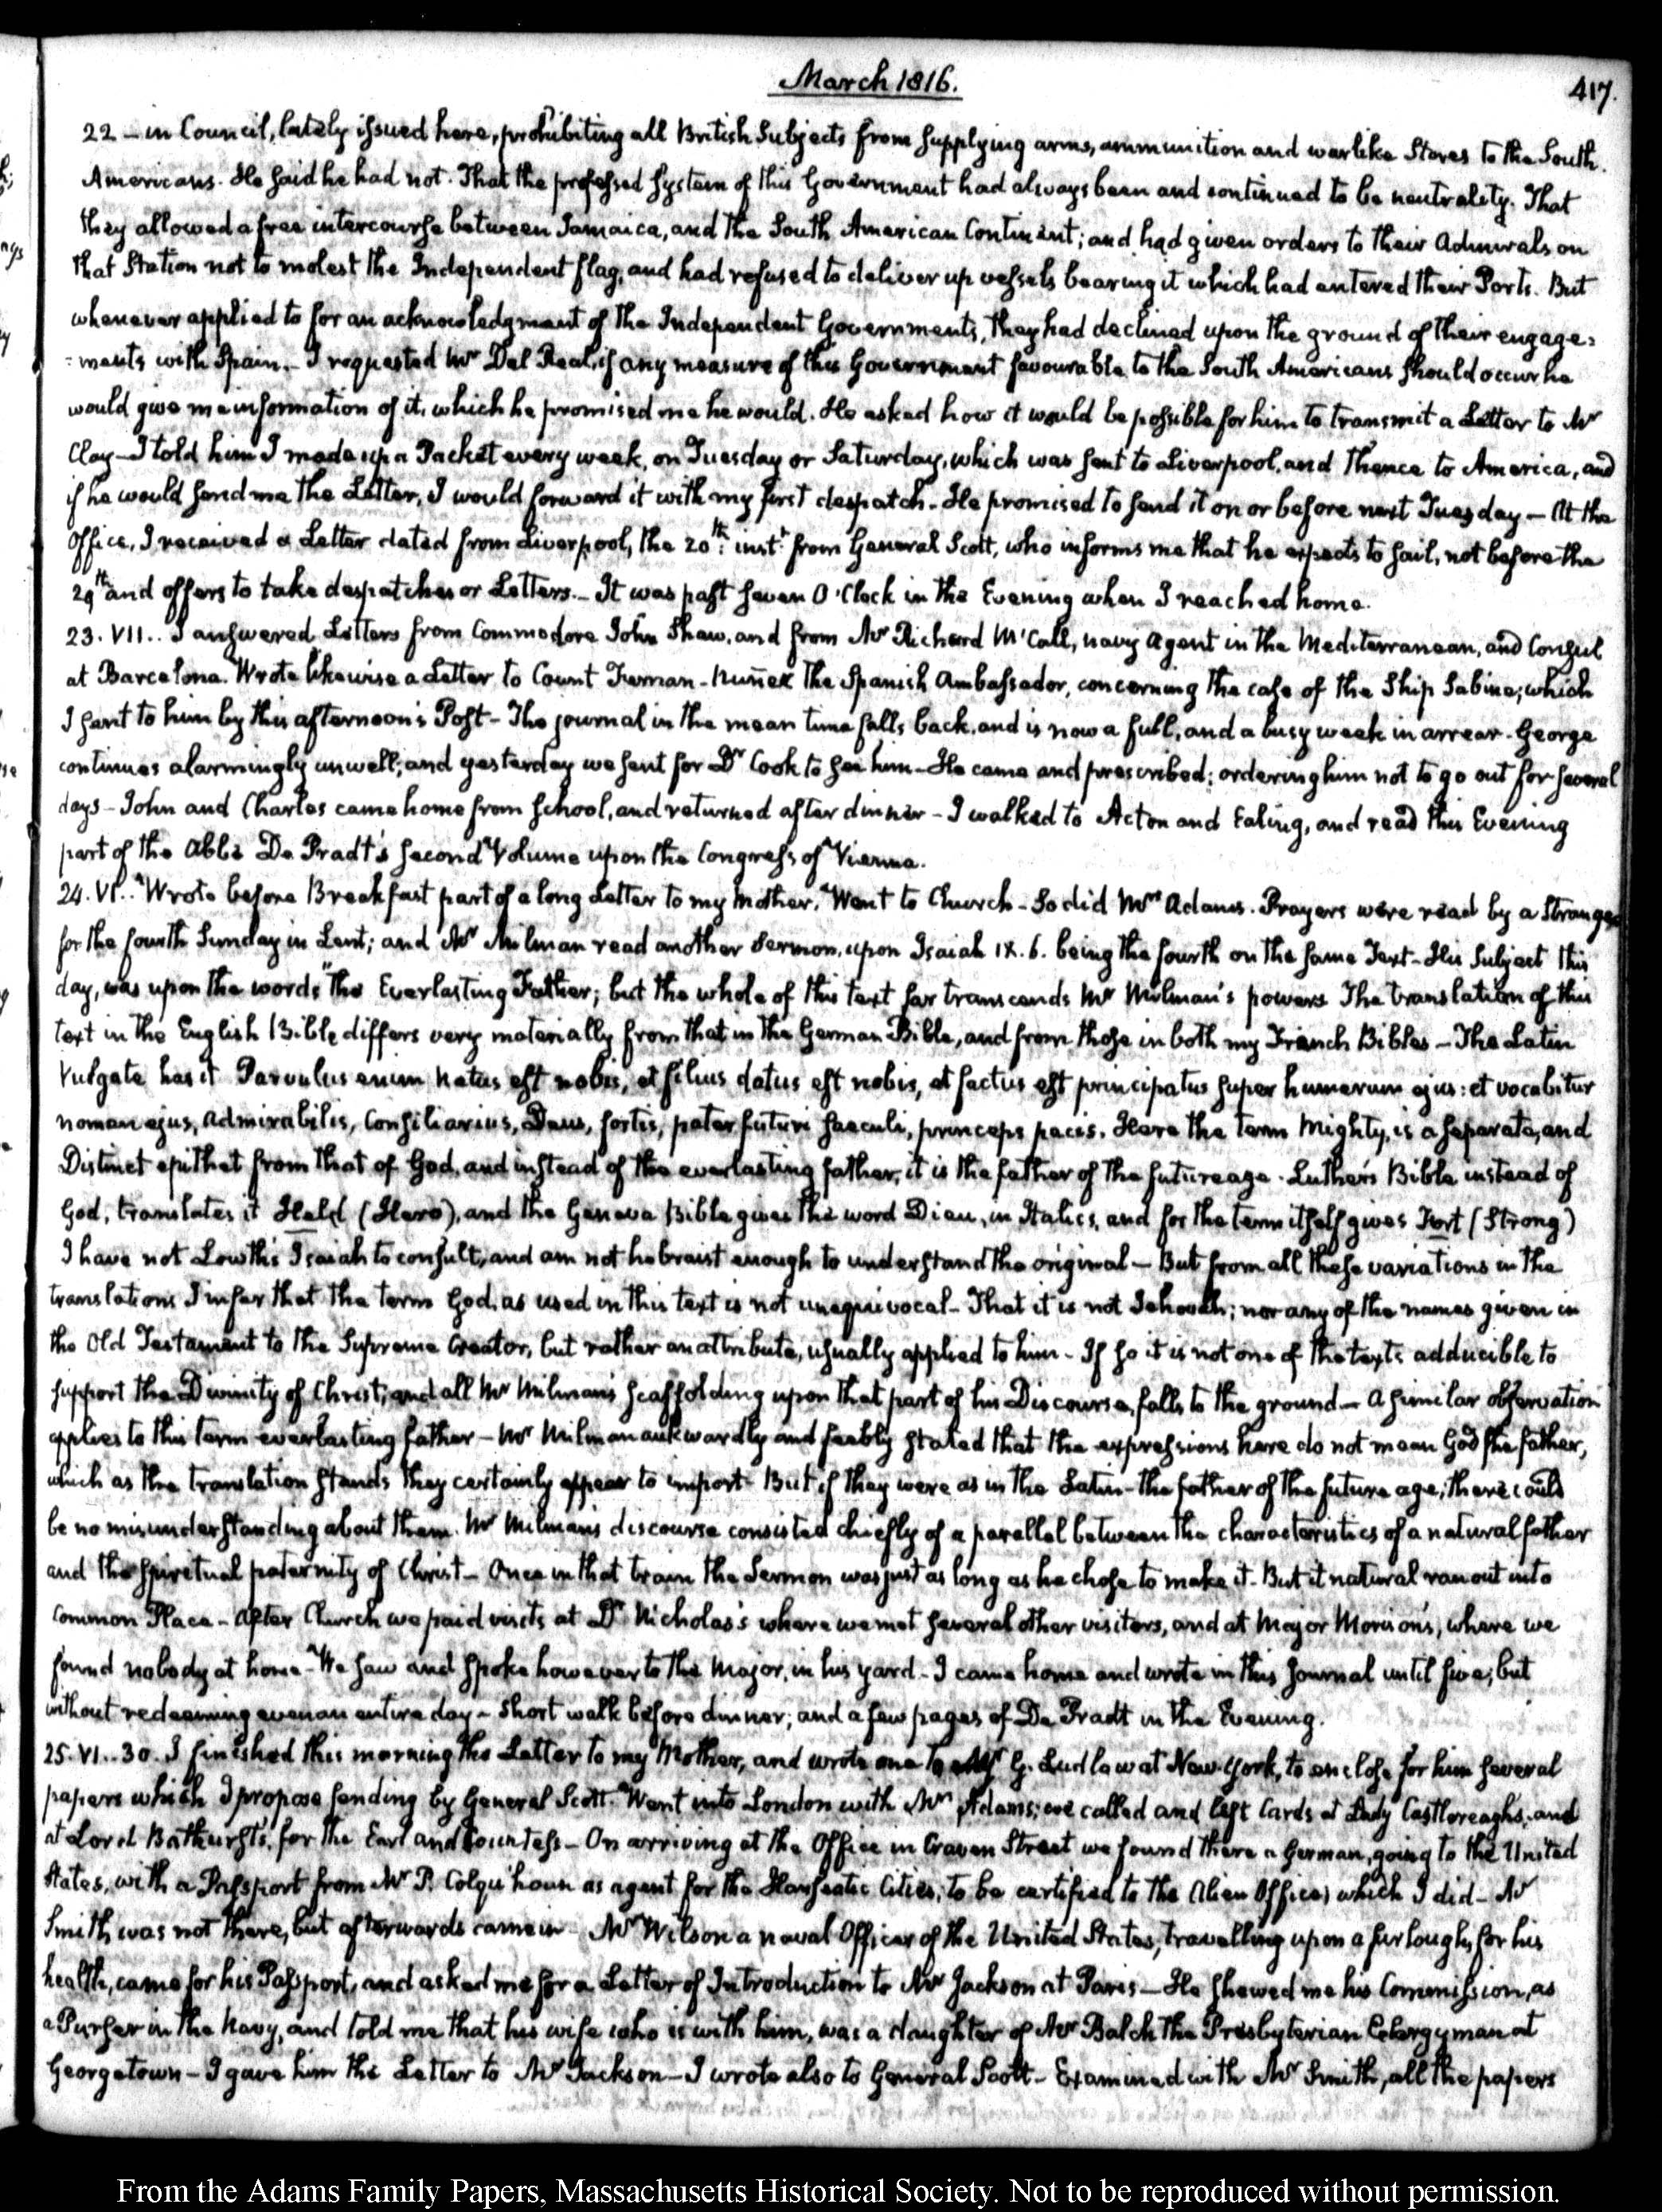 March 1816.
417.
22 – in Council, lately issued here, prohibiting all British Subjects from supplying arms, ammunition and warlike Stores to the South.
Americans. He said he had not. That the professed system of this Government had always been and continued to be neutrality. That
they allowed a free intercourse between Jamaica, and the South American Continent; and had given orders to their Admirals on
that Station not to molest the Independent flag, and had refused to deliver up vessels bearing it which had entered their Ports. But
whenever applied to for an acknowledgment of the Independent Governments, they had declined upon the ground of their engage=
=ments with Spain. – I requested Mr Del Real, if any measure of this Government favourable to the South Americans should occur he
would give me information of it, which he promised me he would. He asked how it would be possible for him to transmit a Letter to Mr
Clay – I told him I made up a Packet every week, on Tuesday or Saturday, which was sent to Liverpool, and thence to America, and
if he would send me the Letter, I would forward it with my first despatch – He promised to send it on or before next Tuesday – At the
Office, I received a Letter dated from Liverpool, the 20th: instt from General Scott, who informs me that he expects to sail, not before the
29th and offers to take despatches or Letters. – It was past seven O'Clock in the Evening when I reached home.
23. VII.. I answered Letters from Commodore John Shaw, and from Mr Richard M'Call, navy Agent in the Mediterranean, and Consul
at Barcelona. Wrote likewise a Letter to Count Fernan-Nuñez the Spanish Ambassador, concerning the case of the Ship Sabine; which
I sent to him by this afternoon's Post – The journal in the mean time falls back, and is now a full, and a busy week in arrear. George
continues alarmingly unwell; and yesterday we sent for Dr Cook to see him – He came and prescribed; ordering him not to go out for several
days – John and Charles came home from school, and returned after dinner – I walked to Acton and Ealing, and read this Evening
part of the Abbé De Pradt's second Volume upon the Congress of Vienna.
24. VI.. Wrote before Breakfast part of a long Letter to my Mother. Went to Church – So did Mrs Adams. Prayers were read by a Stranger
for the fourth Sunday in Lent; and Mr Milman read another Sermon, upon Isaiah IX. 6. being the fourth on the same Text – His Subject this
day, was upon the words "the Everlasting Father; but the whole of this text far transcends Mr Milman's powers The translation of this
text in the English Bible differs very materially from that in the German Bible, and from those in both my French Bibles – The Latin
Vulgate has it Parvulus enim natus est nobis, et filius datus est nobis, et factus est principatus super humerum ejus: et vocabitur
nomen ejus, Admirabilis, Consiliarius, Deus, fortis, pater futuri saeculi, princeps pacis. Here the term Mighty, is a separate, and
Distinct epithet from that of God, and instead of the everlasting father, it is the father of the future age. Luther's Bible instead of
God, translates it Held (Hero), and the Geneva Bible gives the word Dieu, in Italics, and for the term itself gives Fort (Strong)
I have not Lowth's Isaiah to consult, and am not hebraist enough to understand the original – But from all these variations in the
translations I infer that the term God, as used in this text is not unequivocal – That it is not Jehovah; nor any of the names given in
the Old Testament to the Supreme Creator, but rather an attribute, usually applied to him – If so it is not one of the texts adducible to
support the Divinity of Christ; and all Mr Milman's scaffolding upon that part of his Discourse, falls to the ground – A similar observation
applies to this term everlasting father – Mr Milman awkwardly and feebly stated that the expressions here do not mean God the father,
which as the translation stands they certainly appear to import – But if they were as in the Latin – the father of the future age, there could
be no misunderstanding about them. Mr Milman's discourse consisted chiefly of a parallel between the characteristics of a natural father
and the spiritual paternity of Christ – Once in that train the Sermon was just as long as he chose to make it – But it natural ran out into
Common Place – After Church we paid visits at Dr Nicholas's where we met several other visitors, and at Major Morison's, where we
found nobody at home – We saw and spoke however to the Major, in his yard – I came home and wrote in this Journal until five; but
without redeeming even an entire day – Short walk before dinner; and a few pages of De Pradt in the Evening.
25. VI.. 30. I finished this morning the Letter to my Mother, and wrote one to Mr G. Ludlow at New-York, to enclose for him several
papers which I propose sending by General Scott. Went into London with Mrs Adams; we called and left Cards at Lady Castlereagh's, and
at Lord Bathurst's, for the Earl and Countess – On arriving at the Office in Craven Street we found there a German, going to the United
States, with a Passport from Mr P. Colquhoun as agent for the Hanseatic Cities, to be certified to the Alien Office; which I did – Mr
Smith was not there, but afterwards came in – Mr Wilson a naval Officer of the United States, travelling upon a furlough, for his
health, came for his Passport, and asked me for a Letter of Introduction to Mr Jackson at Paris – He shewed me his Commission, as
a Purser in the Navy, and told me that his wife who is with him, was a daughter of Mr Balch the Presbyterian Clergyman at
Georgetown – I gave him the Letter to Mr Jackson – I wrote also to General Scott – Examined with Mr Smith, all the papers
From the Adams Family Papers, Massachusetts Historical Society. Not to be reproduced without permission.